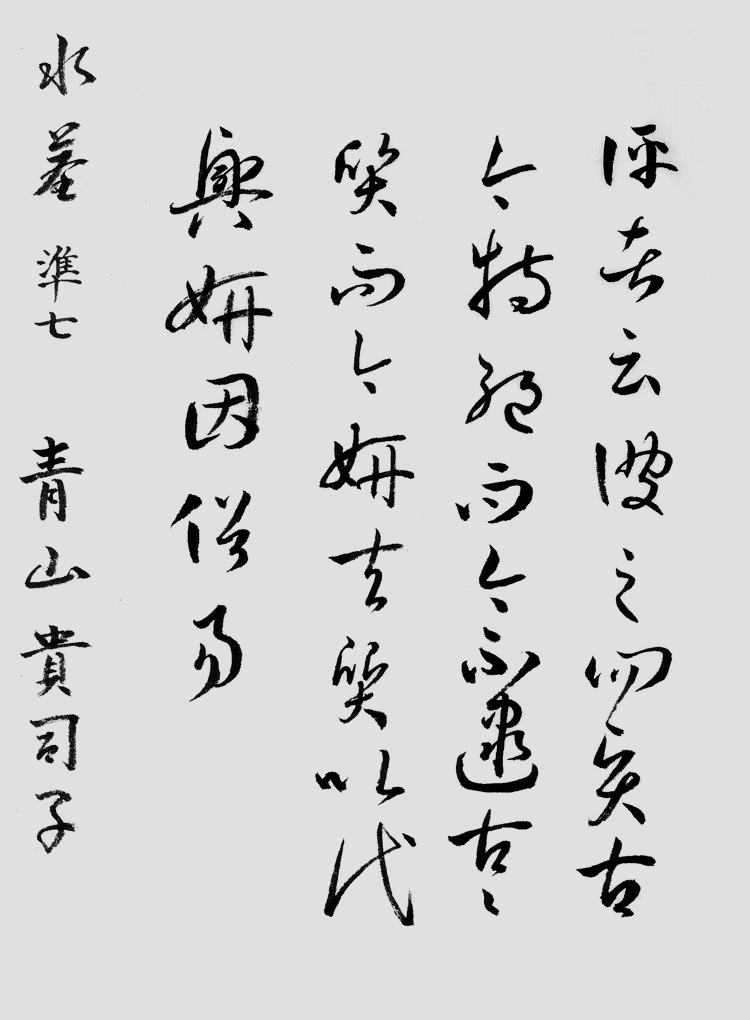 評者云彼之四賢古
今特絶而今不逮古〻
質而今妍夫質以代
興妍因俗易
水茎 準七 青山貴司子